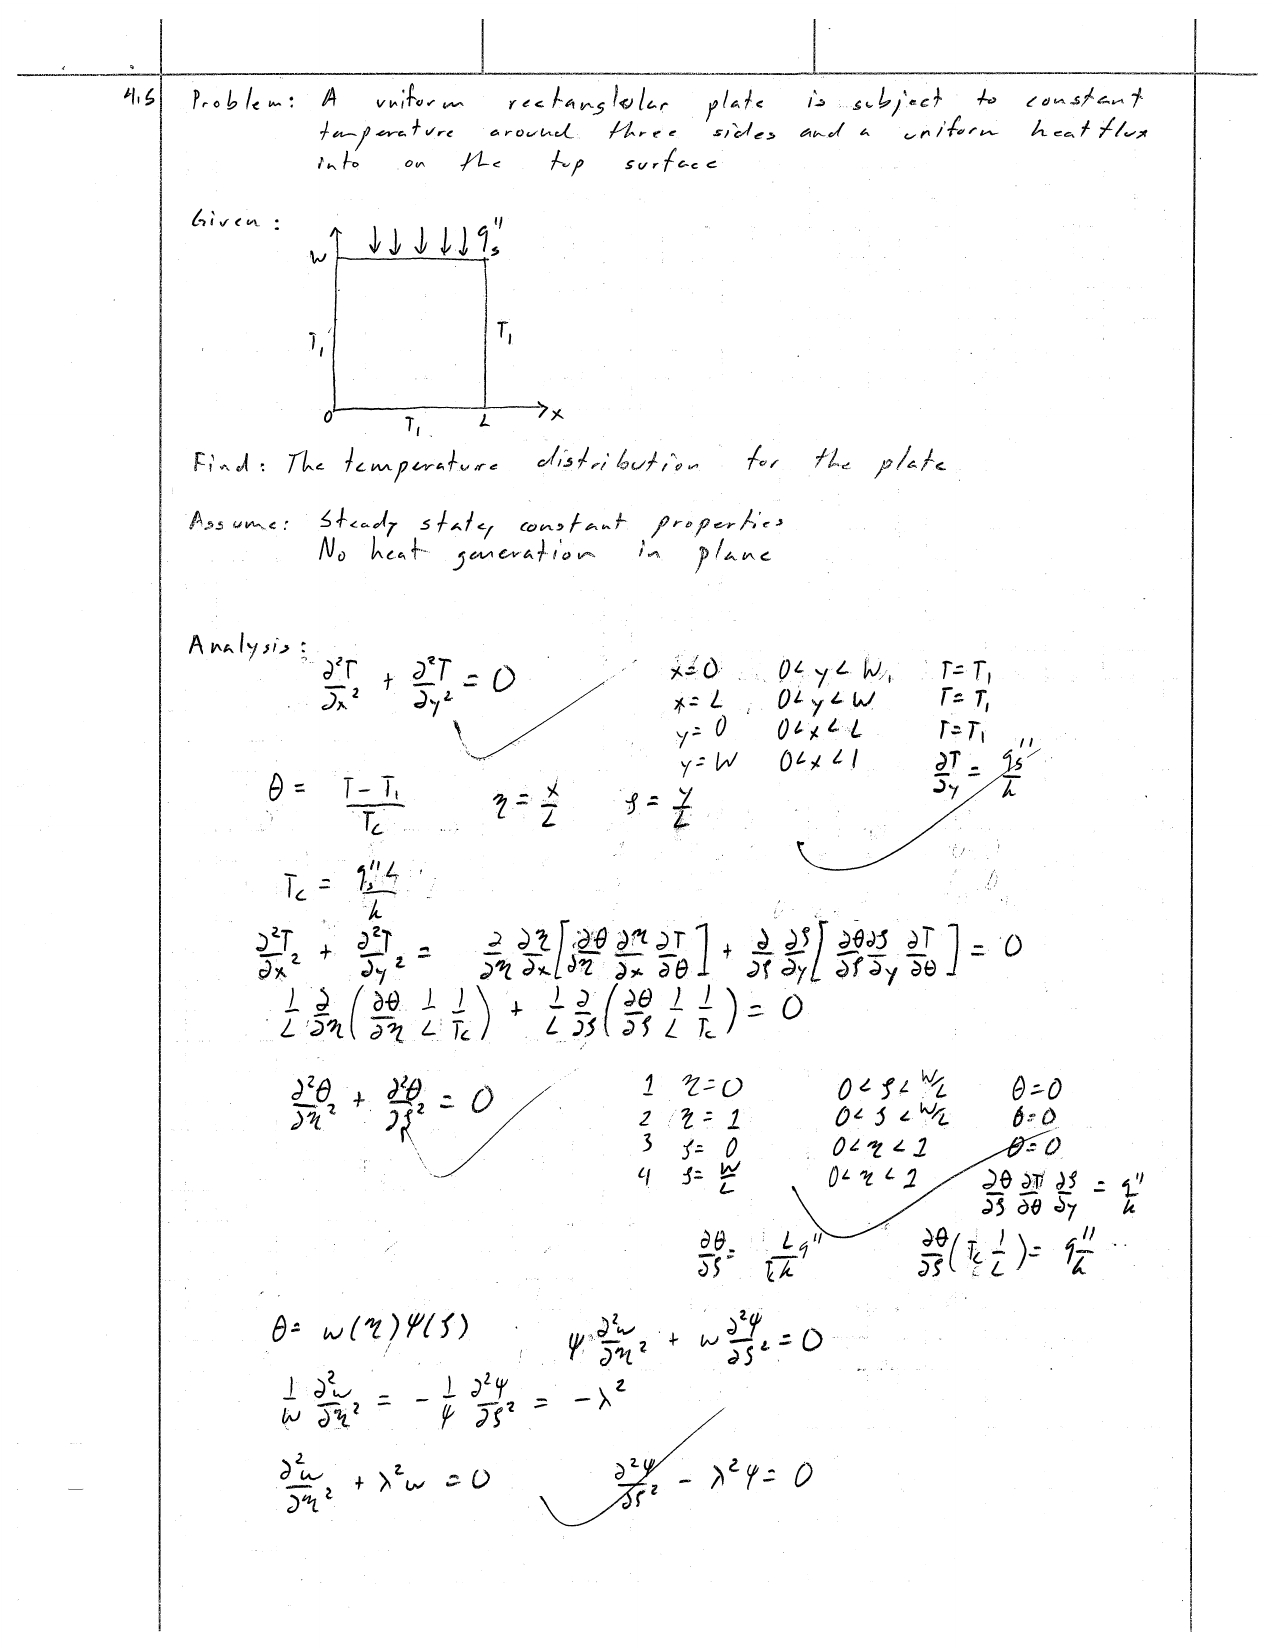 4.5 Problem: A uniform rectanglular plate is subject to constant
temperature around three sides and a uniform heat flux
into on the top surface
Given:
W ↓↓↓↓↓ q_s''
T₁ T₁
0 T₁ L x
Find: The temperature distribution for the plate
Assume: Steady state, constant properties
No heat generation in plane
Analysis:
∂²T/∂x² + ∂²T/∂y² = 0
x=0 0<y<W T=T₁
x=L 0<y<W T=T₁
y=0 0<x<L T=T₁
y=W 0<x<1 ∂T/∂y = q_s''/k
θ = (T-T₁)/T_c η = x/L ζ = y/L
T_c = q_s''L/k
∂²T/∂x² + ∂²T/∂y² = ∂/∂η ∂η/∂x [∂θ/∂η ∂η/∂x ∂T/∂θ] + ∂/∂ζ ∂ζ/∂y [∂θ/∂ζ ∂ζ/∂y ∂T/∂θ] = 0
1/L ∂/∂η (∂θ/∂η 1/L 1/T_c) + 1/L ∂/∂ζ (∂θ/∂ζ 1/L 1/T_c) = 0
∂²θ/∂η² + ∂²θ/∂ζ² = 0
1 η=0 0<ζ<W/L θ=0
2 η=1 0<ζ<W/L θ=0
3 ζ=0 0<η<1 θ=0
4 ζ=W/L 0<η<1 ∂θ/∂ζ ∂T/∂θ ∂ζ/∂y = q''/k
∂θ/∂ζ = L/(T_c k) q'' ∂θ/∂ζ (T_c 1/L) = q''/k
θ = w(η)ψ(ζ) ψ ∂²w/∂η² + w ∂²ψ/∂ζ² = 0
1/w ∂²w/∂η² = -1/ψ ∂²ψ/∂ζ² = -λ²
∂²w/∂η² + λ²w = 0 ∂²ψ/∂ζ² - λ²ψ = 0